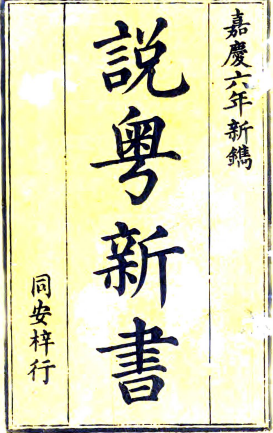 嘉慶六年新鐫
說粵新書
同安梓行